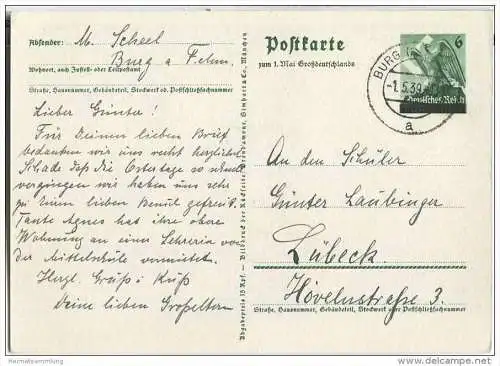 Absender: M. Scheel
Burg a Fehm.
Wohnort, auch Zustell- oder Leitpostamt
Straße, Hausnummer, Gebäudeteil, Stockwerk od. Postschließfachnummer
Lieber Günter!
Für Deinen lieben Brief
bedanken wir uns recht herzlichst.
Schade daß die Ostertage so schnell
vergingen wir haben uns sehr
zu Deinem lieben Besuch gefreut.
Tante Agnes hat ihre obere
Wohnung an einer Lehrerin von
der Mittelschule vermietet.
Herzl. Gruß u Kuß
Deine lieben Großeltern
Abgabepreis 15 Rpf.
Postkarte
zum 1. Mai Großdeutschlands
6
Deutsches Reich
BURG
-1.5.39
a
An den Schüler
Günter Laubinger
Lübeck
Hövelnstraße 3.
Straße, Hausnummer, Gebäudeteil, Stockwerk oder Postschließfachnummer
heimatsammlung
www.delcampe.net